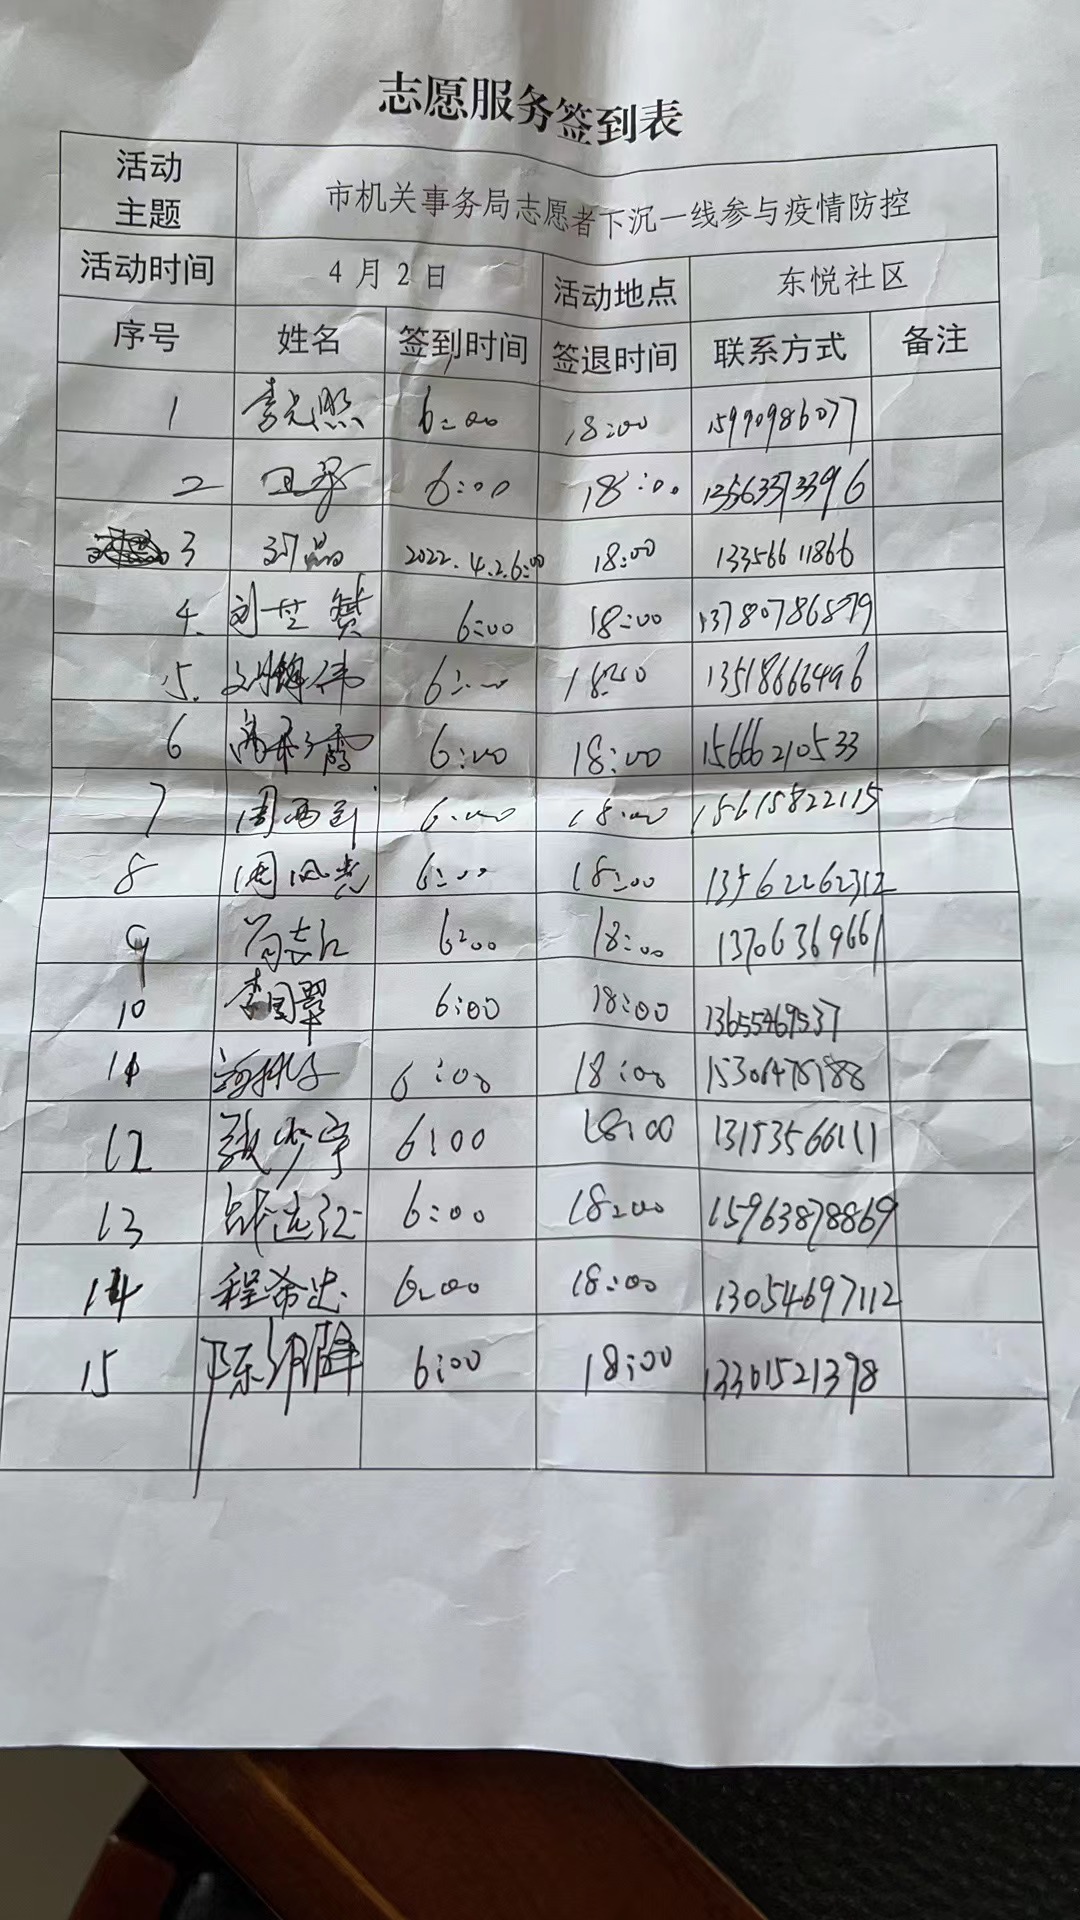 志愿服务签到表
活动主题 市机关事务局志愿者下沉一线参与疫情防控
活动时间 4月2日 活动地点 东悦社区
序号 姓名 签到时间 签退时间 联系方式 备注
1 李光照 6:00 18:00 15990986077
2 6:00 18:00 13563373396
3 2022.4.2.6:00 18:00 13356611866
4. 刘芝赞 6:00 18:00 13780786879
5. 刘锋伟 6:00 18:00 13518666496
6 6:00 18:00 15666210533
7 6:00 18:00 15615822115
8 周风光 6:00 18:00 13562262312
9 尚志江 6:00 18:00 13706369661
10 李国翠 6:00 18:00 13655469537
11 6:00 18:00
12 张少宇 6:00 18:00 13153566111
13 战选江 6:00 18:00 15963878869
14 程希忠 6:00 18:00 13054697112
15 6:00 18:00 13301521398